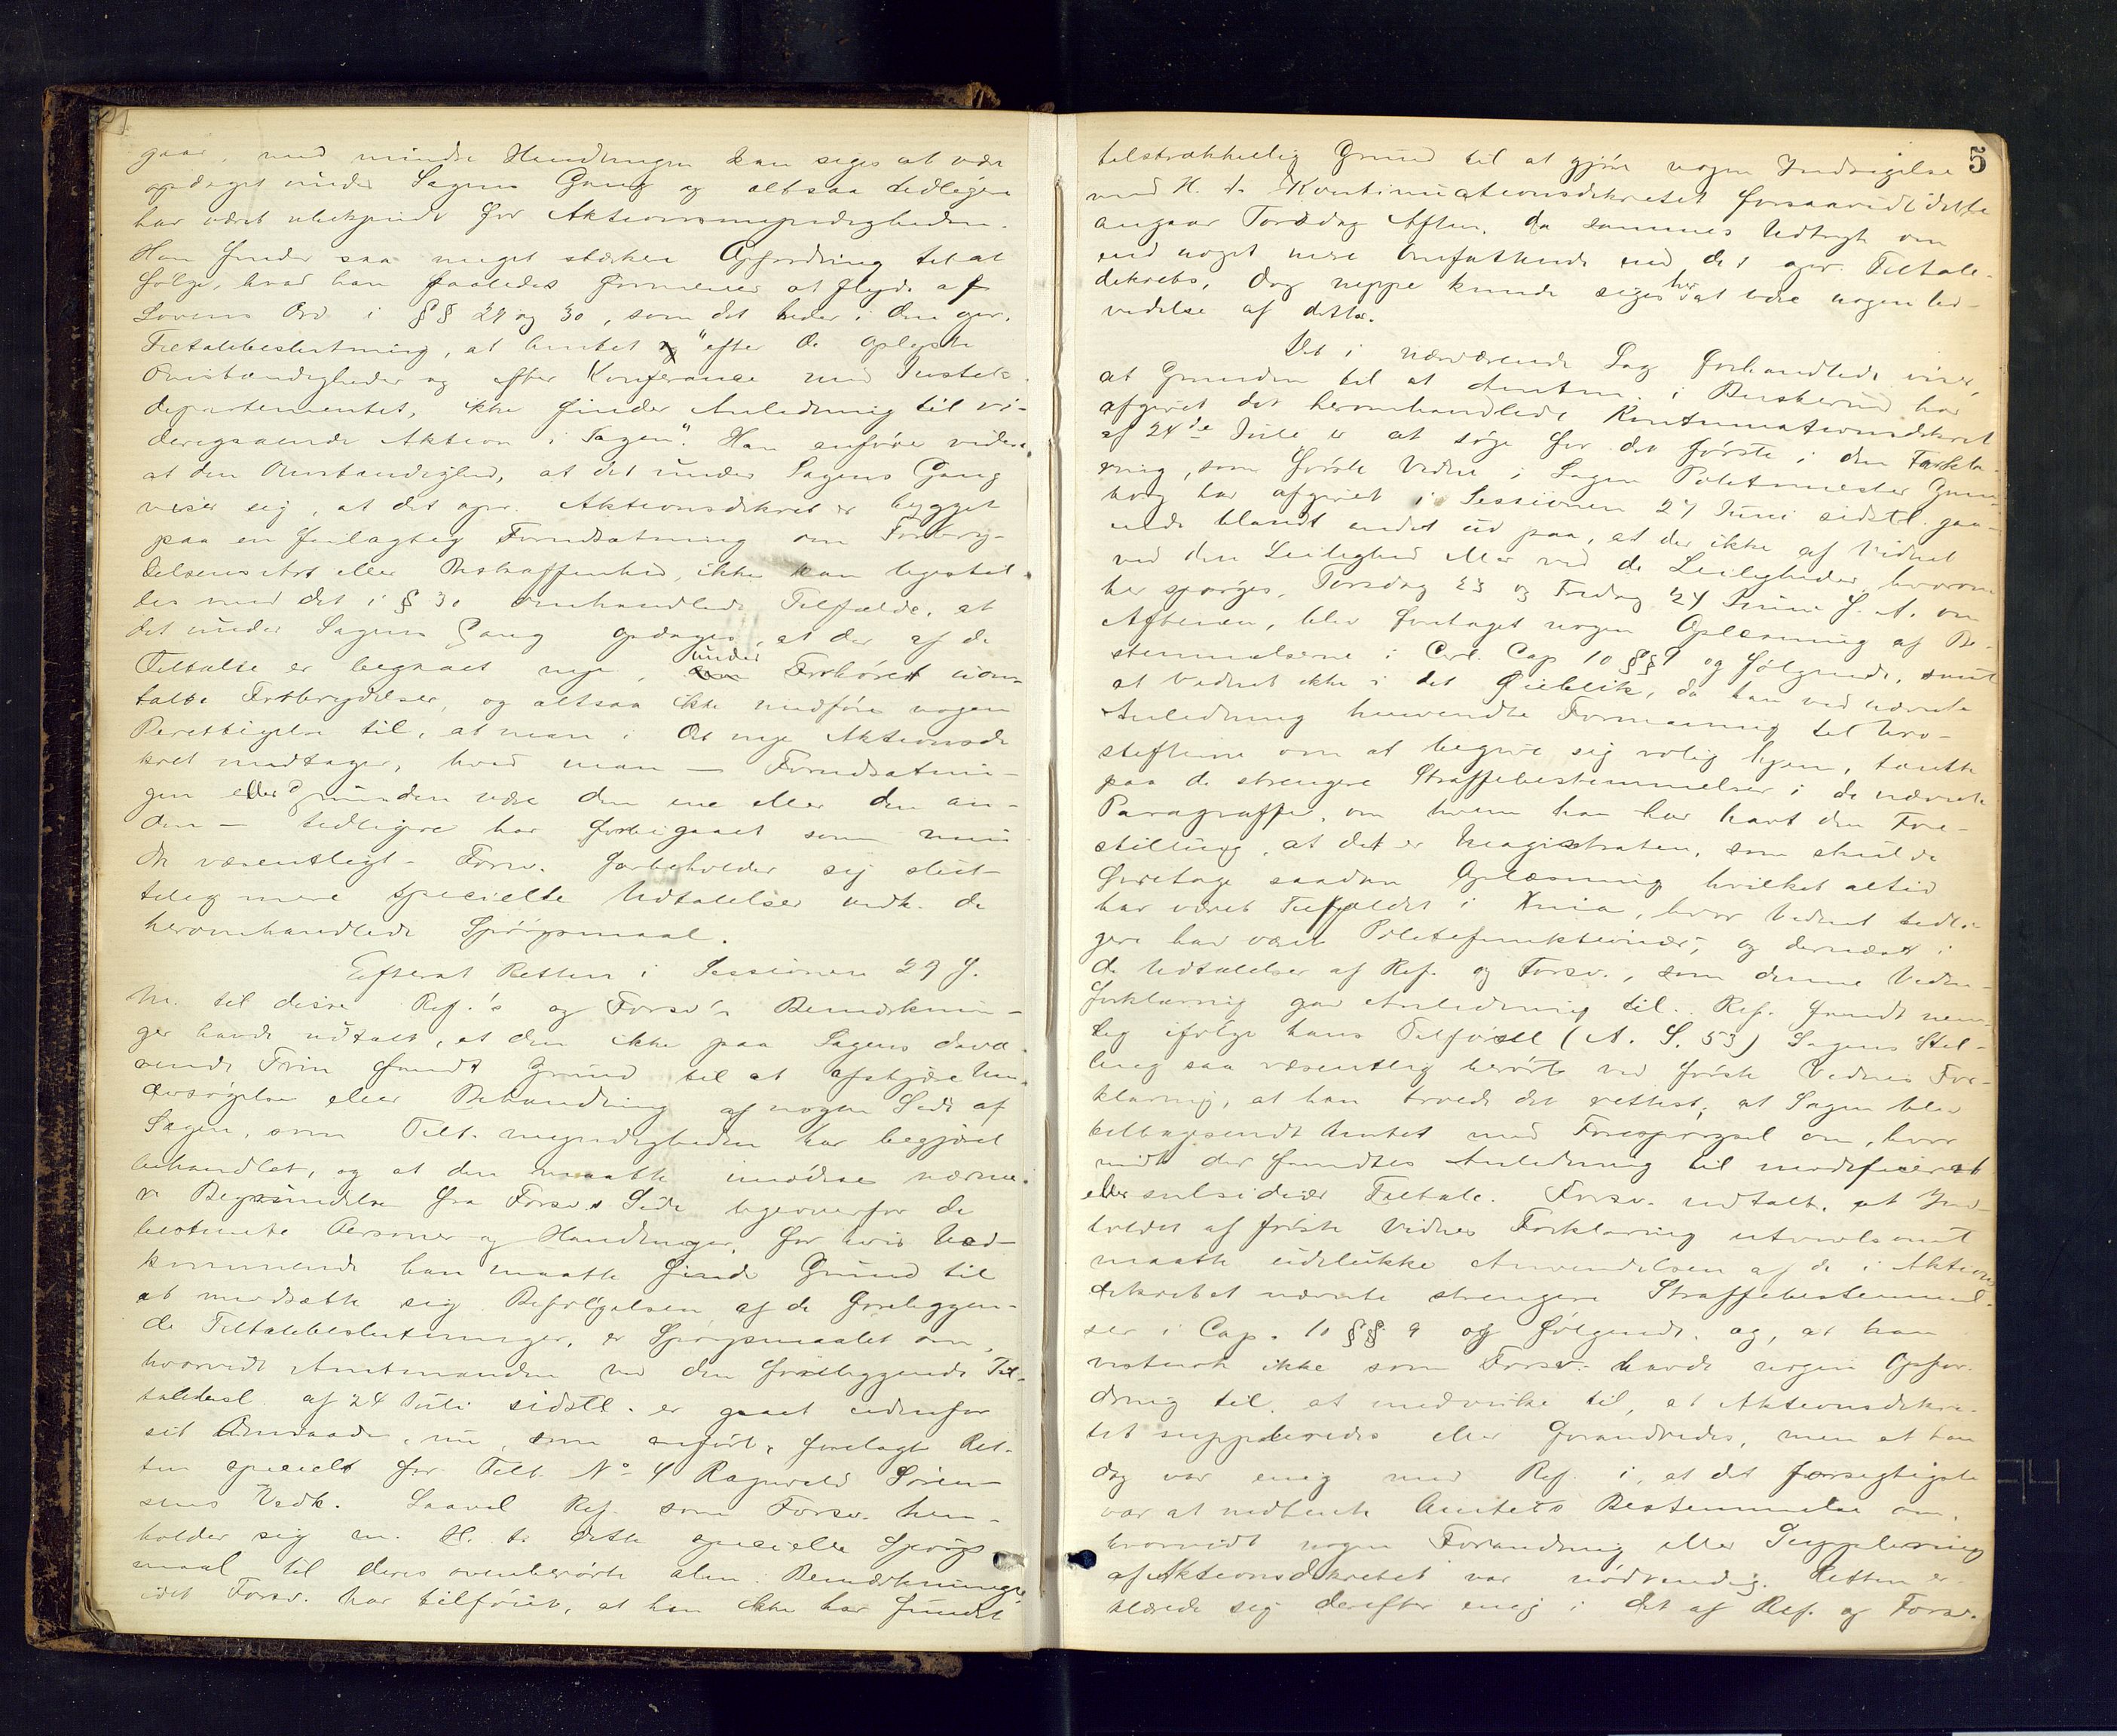 gaar, med mindre Handlingen kan siges at være
opdaget under Sagens Gang og altsaa tidligere
har været ubekjendt for Aktionsmyndigheden.
Han finder saa meget stærkere Opfordring til at
følge, hvad han saaledes formener at flyde af
Lovens Ord i §§ 29 og 30, som det heder i den opr.
Tiltalebeslutning, at Amtet "efter de oplyste
Omstændigheder og efter Konferance med Justits-
departementet, ikke finder Anledning til vi-
deregaaende Aktion i Sagen". Han anfører videre,
at den Omstændighed, at det under Sagens Gang
viser sig, at det opr. Aktionsdekret er bygget
paa en feilagtig Forudsætning om Forbry-
delsens Art eller Beskaffenhed, ikke kan ligestil-
les med det i § 30 omhandlede Tilfælde, at
det under Sagens Gang opdages, at der af de
Tiltalte er begaaet nye, under Forhøret uom-
talte Forbrydelser, og altsaa ikke medføre nogen
Berettigelse til, at man i det nye Aktionsde-
kret medtager, hvad man – Forudsætnin-
gen eller Grunden være den ene eller den an-
den – tidligere har forbigaaet som min-
dre væsentligt. Forsv. forbeholder sig slut-
telig mere specielle Udtalelser vedk. de
heromhandlede Spørgsmaal.
Efterat Retten i Sessionen 29 f.
M. til disse Ref.'s og Forsv's Bemærknin-
ger havde udtalt, at den ikke paa Sagens davæ-
rende Trin fandt Grund til at afskjære Un-
dersøgelse eller Behandling af nogen Side af
Sagen, som Tilt. myndigheden har begjært
behandlet, og at den maatte imødese nærme-
re Begrundelse fra Forsv.s Side ligeoverfor de
bestemte Personer og Handlinger, for hvis Ved-
kommende han maatte finde Grund til
at modsætte sig Befølgelsen af de foreliggen-
de Tiltalebeslutninger, er Spørgsmaalet om,
hvorvidt Amtmanden ved den foreliggende Til-
talebesl. af 24 Juli sidstl. er gaaet udenfor
sit Omraade, nu, som anført, forelagt Ret-
ten specielt for Tilt. No 4 Ragnvald Søren-
sens Vedk. Saavel Ref. som Forsv. hen-
holder sig m. H. t. dette specielle Spørgs-
maal til deres ovenberørte alm. Bemærkninger,
idet Forsv. har tilføiet, at han ikke har fundet
5
tilstrækkelig Grund til at gjøre nogen Indsigelse
med H. t. Kontinuationsdekretet forsaavidt dette
angaar Torsdag Aften, da sammes Udtryk om
end noget mere omfattende end det opr. Tiltale-
dekrets, dog neppe kunde siges her at være nogen Ud-
videlse af dette.
Det i nærværende Sag forhandlede viser,
at Grunden til at Amtm. i Buskerud har
afgivet det heromhandlede Kontinuationsdekret
af 24de Juli er at søge for det første i den Forkla-
ring, som første Vidne i Sagen Politimester
har afgivet i Sessionen 27 Juni sidstl. gaa-
ende blandt andet ud paa, at der ikke af Vidnet
ved den Leilighed eller ved de Leiligheder, hvorom
her spørges, Torsdag 23 og Fredag 24 Juni d. A. om
Aftenen, blev foretaget nogen Oplæsning af Be-
stemmelserne i Crl. Cap 10 §§ 9 og følgende, samt
at Vidnet ikke i det Øieblik, da han ved nævnte
Anledning henvendte Formaning til Uro-
stifterne om at begive sig rolig hjem, tænkte
paa de strengere Straffebestemmelser i de nævnte
Paragraffer, om hvem han har havt den Fore-
stilling, at det er Magistraten, som skulde
foretage saadan Oplæsning hvilket altid
har været Tilfældet i Xnia, hvor Vidnet tidli-
gere har været Politifunktionær, og dernæst i
de Udtalelser af Ref. og Forsv., som denne Vidne-
forklaring gav Anledning til. Ref. fandt nem-
lig ifølge hans Tilførsel (A. S. 53) Sagens Stil-
ling saa væsentlig berørt ved første Vidnes For-
klaring, at han troede det rettest, at Sagen blev
tilbagesendt Amtet med Forespørgsel om, hvor-
vidt der fandtes Anledning til modificeret
eller subsidiær Tiltale. Forsv. udtalte, at Ind-
holdet af første Vidnes Forklaring utvivlsomt
maatte udelukke Anvendelsen af de i Aktions-
dekretet nævnte strengere Straffebestemmel-
ser i Cap. 10 §§ 9 og følgende. og, at han
vistnok ikke som Forsv. havde nogen Opfor-
dring til, at medvirke til, at Aktionsdekre-
tet suppleredes eller forandredes, men at han
dog var enig med Ref. i, at det forsigtigste
var at indhente Amtets Bestemmelse om,
hvorvidt nogen Forandring eller Supplering
af Aktionsdekretet var nødvendig. Retten er-
klærede sig derefter enig i det af Ref. og Forsv.